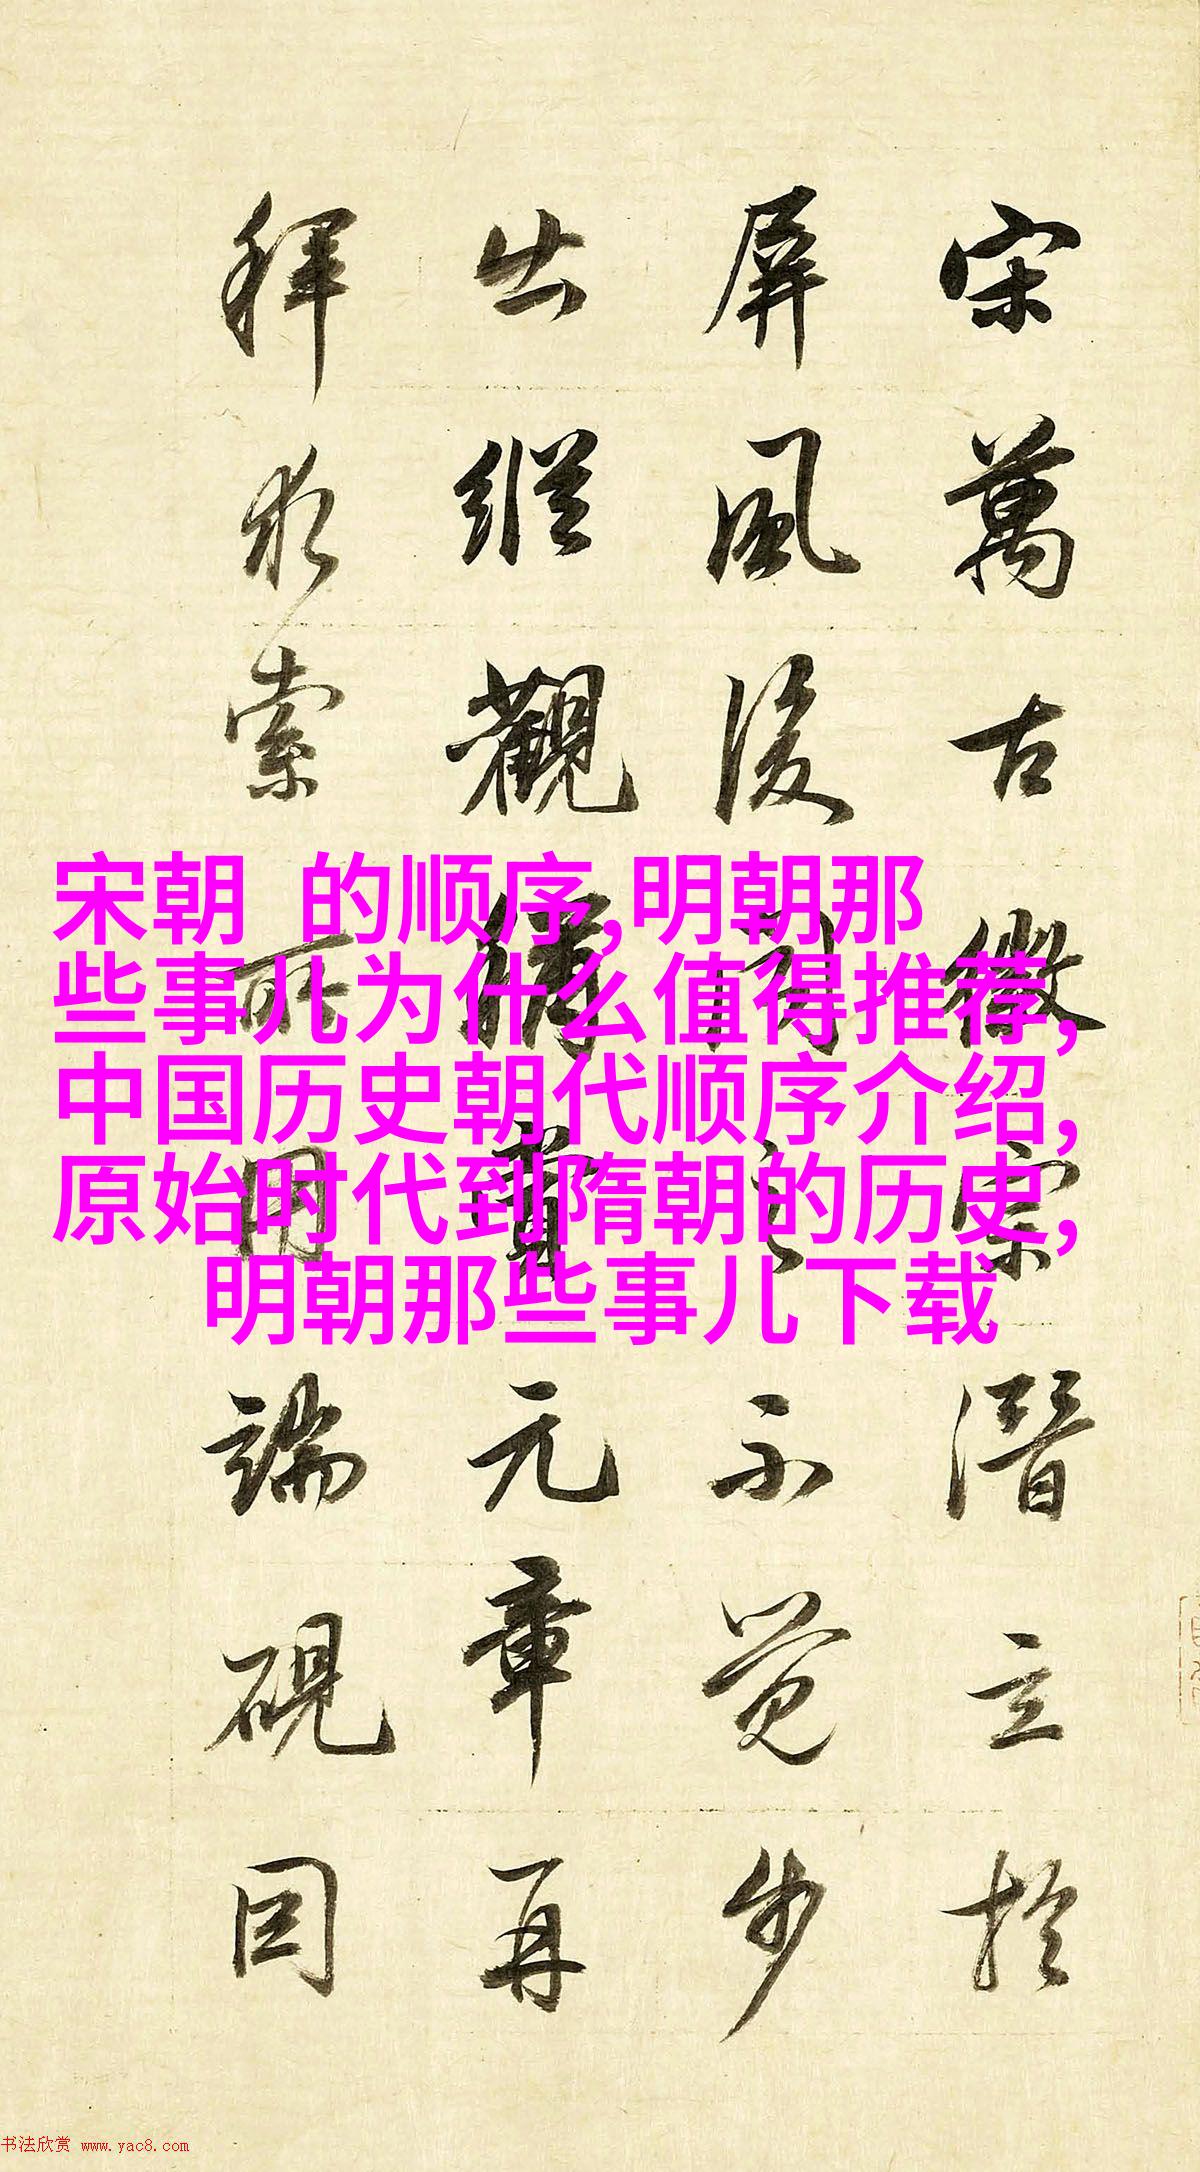 宋萬古徽宗潛立於
屏風後聞之不覺步
出縱觀稱賞元章再
拜求索所用端硯因
宋朝 的顺序,明朝那
些事儿为什么值得推荐,
中国历史朝代顺序介绍,
原始时代到隋朝的历史,
明朝那些事儿下载
书法欣赏 www.yac8.com